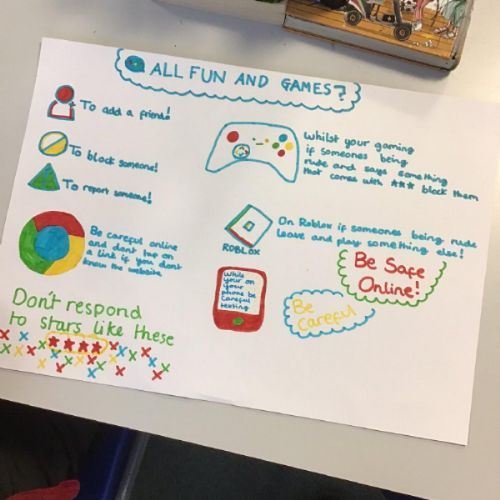 ALL FUN AND GAMES?
To add a friend!
To block someone!
To report someone!
Be careful online
and dont tap on
a link if you dont
know the website
Don't respond
to stars like these
Whilst your gaming
if someones being
rude and says something
that comes with *** block them
ROBLOX
On Roblox if someones being rude
leave and play something else!
While
your on
your
phone be
careful
texting
Be Safe
Online!
Be
careful